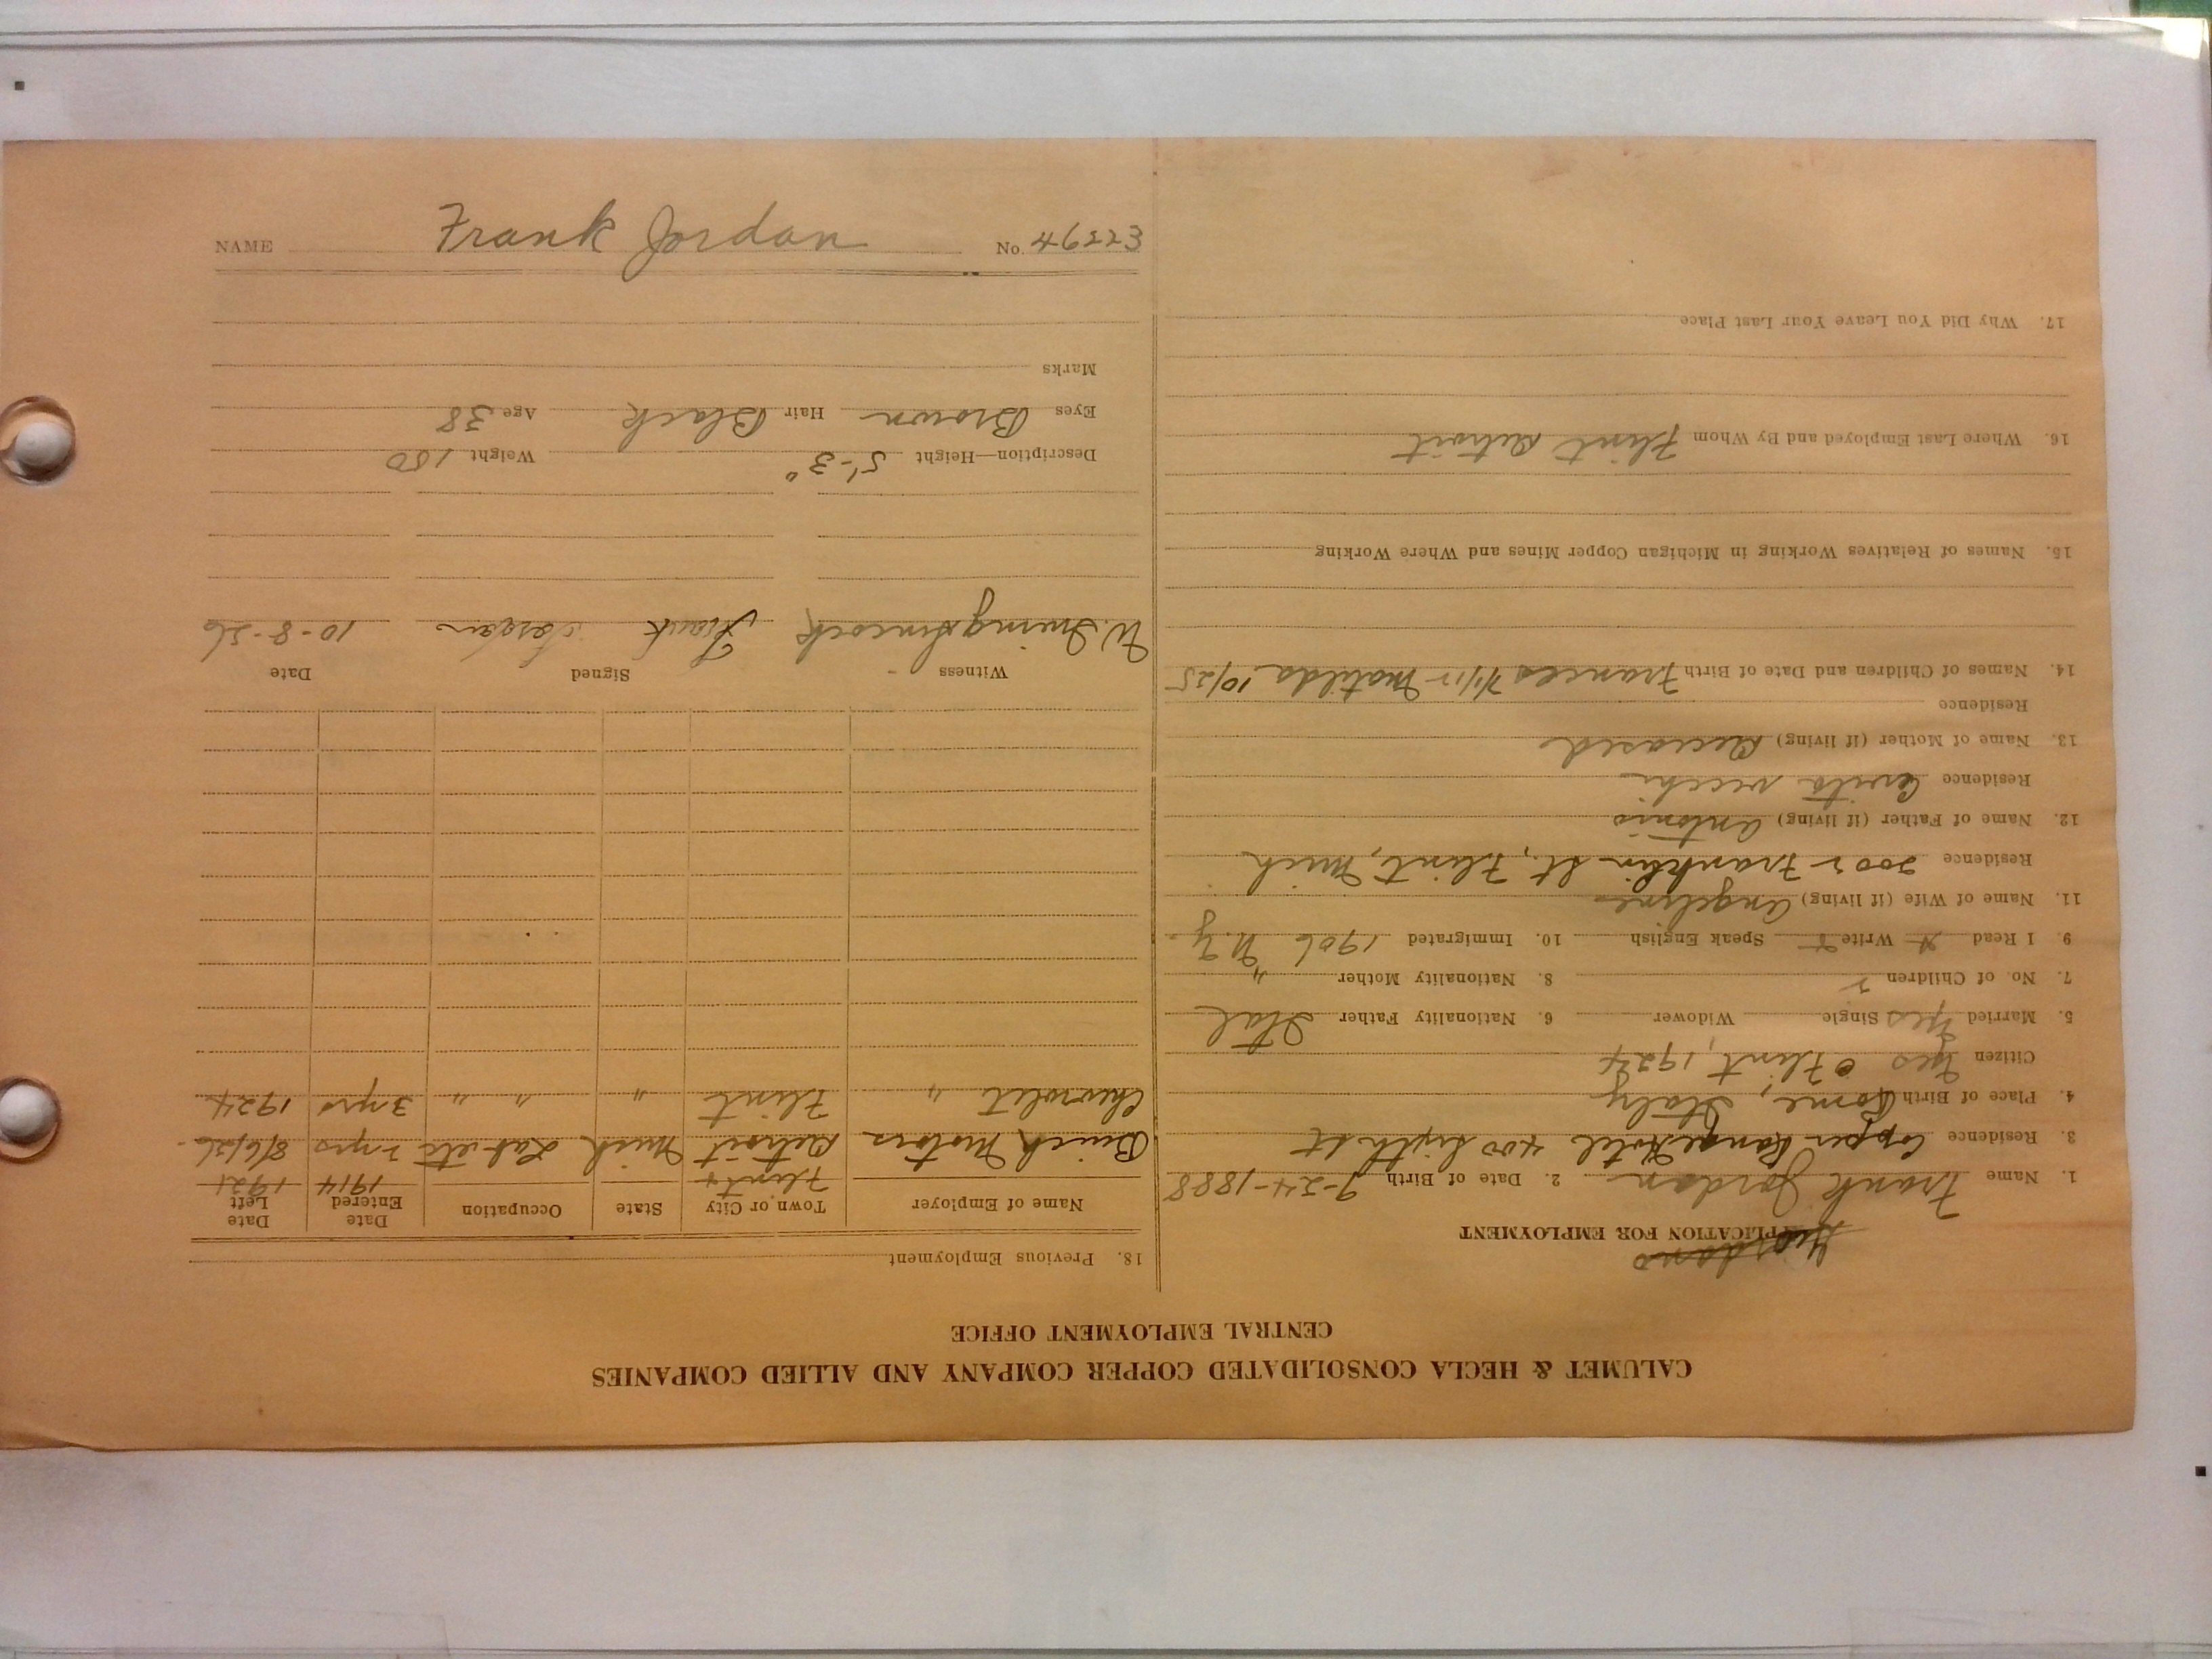 CALUMET & HECLA CONSOLIDATED COPPER COMPANY AND ALLIED COMPANIES
CENTRAL EMPLOYMENT OFFICE
APPLICATION FOR EMPLOYMENT
1. Name Frank Jordan 2. Date of Birth 9-24-1888
3. Residence Copper Range Hotel 400 Sixth St
4. Place of Birth Rome, Italy
Citizen Yes Flint, 1924
5. Married Yes Single Widower 6. Nationality Father Ital
7. No. of Children 2 8. Nationality Mother "
9. I Read Write Speak English 10. Immigrated 1906 N.Y.
11. Name of Wife (if living) Angeline
Residence 2002 Franklin St, Flint, Mich
12. Name of Father (if living) Antonio
Residence
13. Name of Mother (if living) Deceased
Residence
14. Names of Children and Date of Birth Frances Matilda 10/25
15. Names of Relatives Working in Michigan Copper Mines and Where Working
16. Where Last Employed and By Whom Flint Detroit
17. Why Did You Leave Your Last Place
18. Previous Employment
Name of Employer Town or City State Occupation Date Entered Date Left
1914 1921
Buick Motors Flint & Detroit Mich 2 yrs 8/6/26
Chevrolet " Flint " " " 3 yrs 1924
Witness Signed Date
Frank Jordan 10-8-26
Description—Height 5'-3" Weight 150
Eyes Brown Hair Black Age 38
Marks
NAME Frank Jordan No. 46223